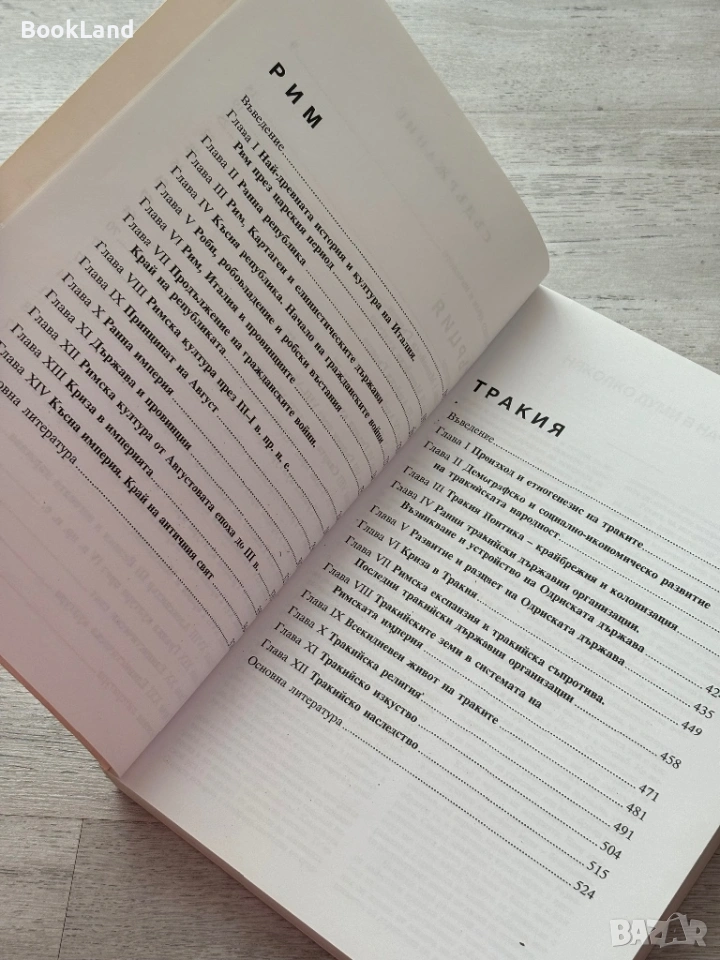 BookLand
РИМ
Въведение
Глава I Най-древната история и култура на Италия.
Рим през царския период
Глава II Ранна република
Глава III Рим, Картаген и елинистическите държави
Глава IV Късна република. Начало на гражданските войни
Глава V Роби, робовладение и робски въстания
Глава VI Рим, Италия и провинциите
Глава VII Продължение на гражданските войни.
Край на републиката
Глава VIII Римска култура през III–I в. пр. н. е.
Глава IX Принципат на Август
Глава X Ранна империя
Глава XI Държава и провинции
Глава XII Римска култура от Августовата епоха до III в.
Глава XIII Криза в империята
Глава XIV Късна империя. Край на античния свят
литература
ТРАКИЯ
Въведение
Глава I Произход и етногенезис на траките
Глава II Демографско и социално-икономическо развитие
на тракийската народност
Глава III Тракия Понтика – крайбрежия и колонизация
Глава IV Ранни тракийски държавни организации.
Възникване и устройство на Одриската държава
Глава V Развитие и разцвет на Одриската държава
Глава VI Криза в Тракия
Глава VII Римска експанзия и тракийска съпротива.
Последни тракийски държавни организации
Глава VIII Тракийските земи в системата на
Римската империя
Глава IX Всекидневен живот на траките
Глава X Тракийска религия
Глава XI Тракийско изкуство
Глава XII Тракийско наследство
Основна литература
435
449
458
471
481
491
504
515
524
BAZAR